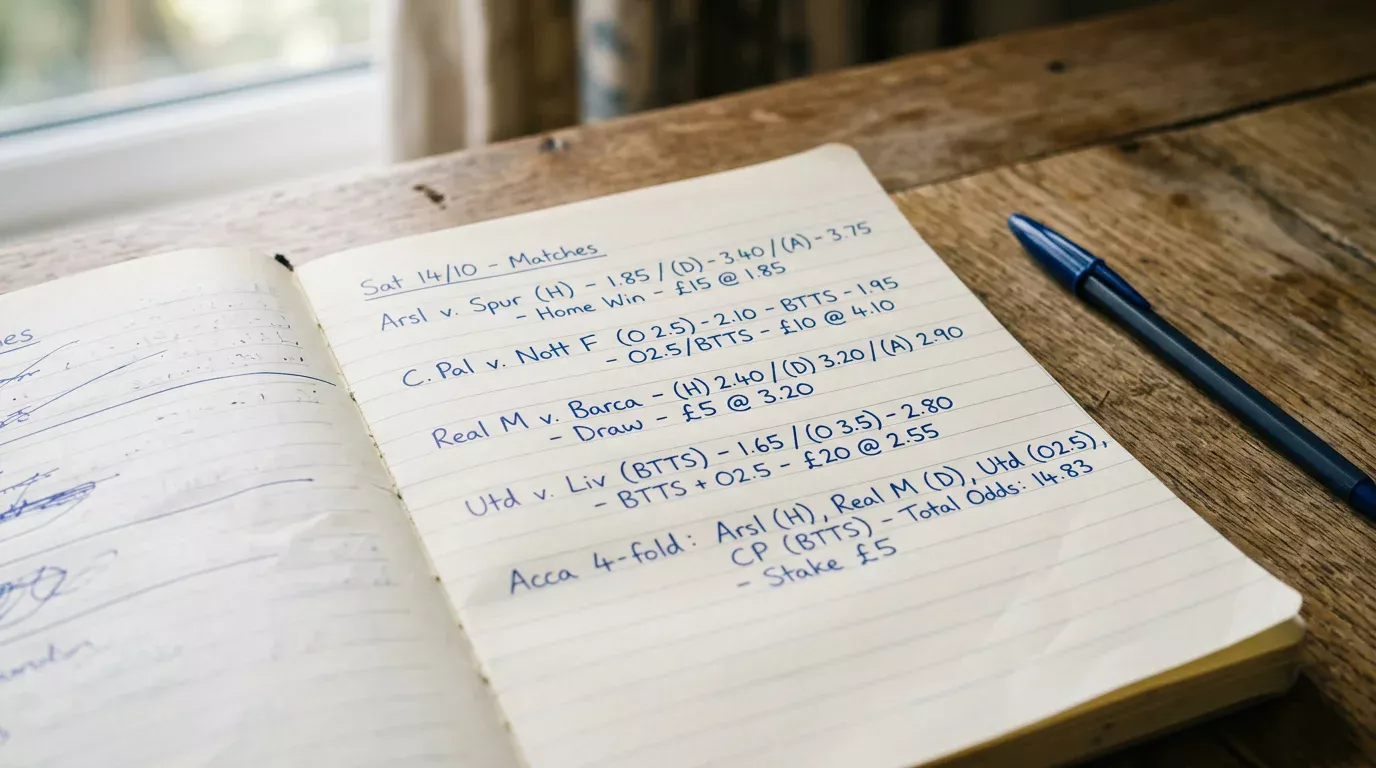 es
Sat 14/10 - Matches
Arsl v. Spur (H) - 1.85 / (D) - 3.40 / (A) - 3.75
- Home Win - £15 @ 1.85
C. Pal v. Nott F (O 2.5) - 2.10 - BTTS - 1.95
- O2.5/BTTS - £10 @ 4.10
Real M v. Barca - (H) 2.40 / (D) 3.20 / (A) 2.90
- Draw - £5 @ 3.20
Utd v. Liv (BTTS) - 1.65 / (O 3.5) - 2.80
- BTTS + O2.5 - £20 @ 2.55
Acca 4-fold: Arsl (H), Real M (D), Utd (O2.5),
CP (BTTS) - Total Odds: 14.83
- Stake £5